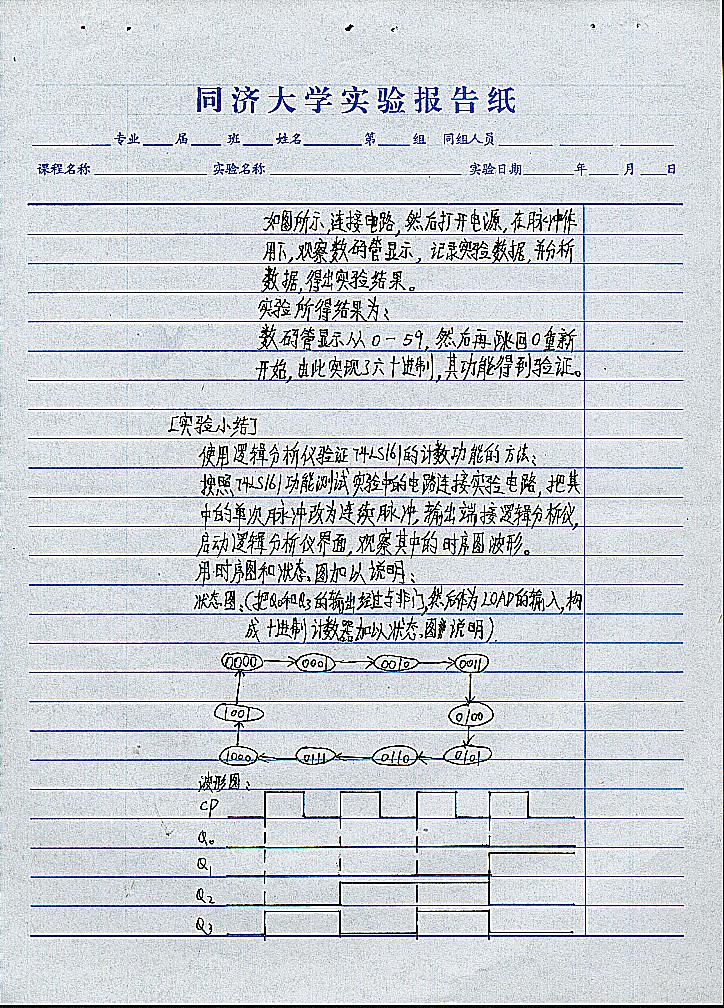 同济大学实验报告纸
专业 届 班 姓名 第 组 同组人员
课程名称 实验名称 实验日期 年 月 日
如图所示,连接电路,然后打开电源,在脉冲作
用下,观察数码管显示,记录实验数据,并分析
数据,得出实验结果。
实验所得结果为:
数码管显示从0-59,然后再跳回0重新
开始,由此实现了六十进制,其功能得到验证。
[实验小结]
使用逻辑分析仪验证74LS161的计数功能的方法:
按照74LS161功能测试实验中的电路连接实验电路,把其
中的单次脉冲改为连续脉冲,输出端接逻辑分析仪,
启动逻辑分析仪界面,观察其中的时序图波形。
用时序图和状态图加以说明:
状态图:(把Q0和Q3的输出经过与非门,然后作为LOAD的输入,构
成十进制计数器加以状态图说明)
0000 0001 0010 0011
1001 0100
1000 0111 0110 0101
波形图:
CP
Q0
Q1
Q2
Q3